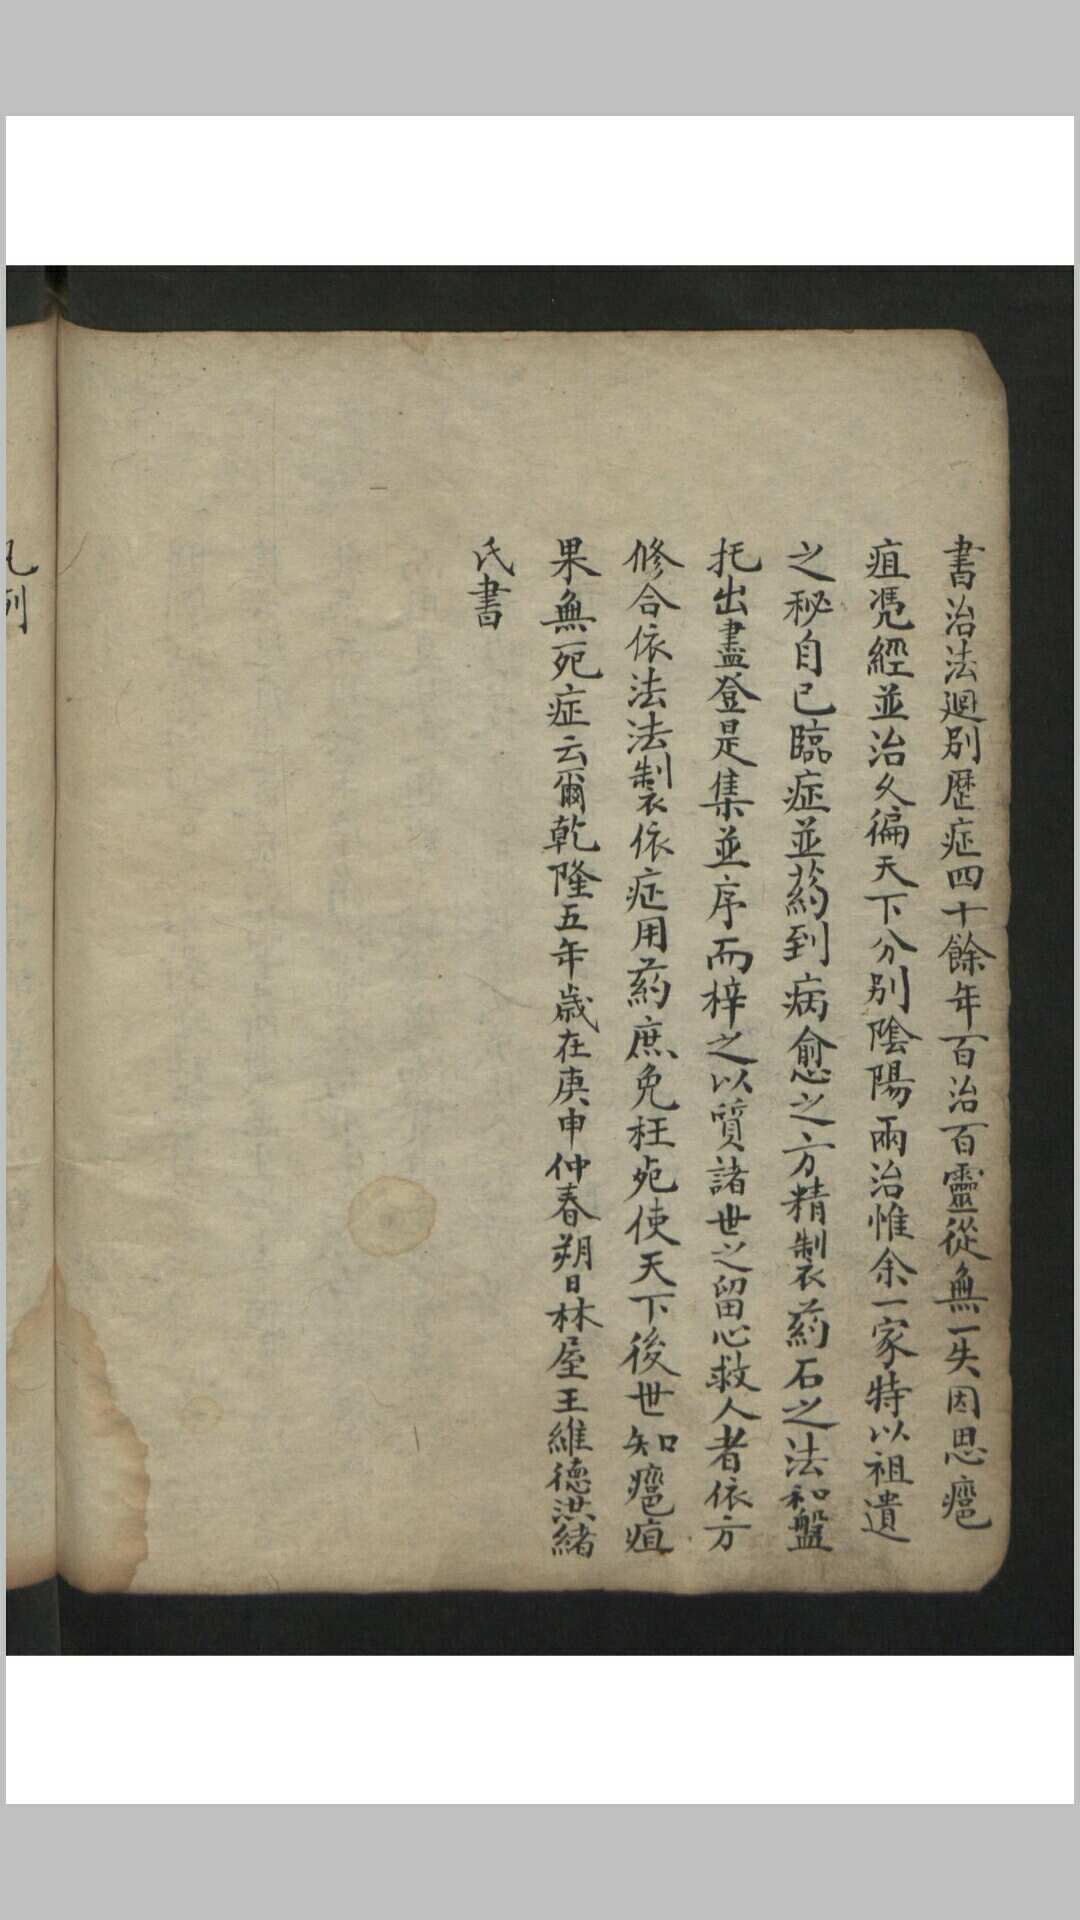 書治法迥別歷症四十餘年百治百靈從無一失因思癰
疽凴經並治久徧天下分別陰陽兩治惟余一家特以祖遺
之秘自己臨症並药到病愈之方精製药石之法和盤
托出盡登是集並序而梓之以質諸世之留心救人者依方
修合依法法製依症用药庶免枉死使天下後世知癰疽
果無一死症云爾乾隆五年歲在庚申仲春朔日林屋王維德洪緒
氏書
凡列